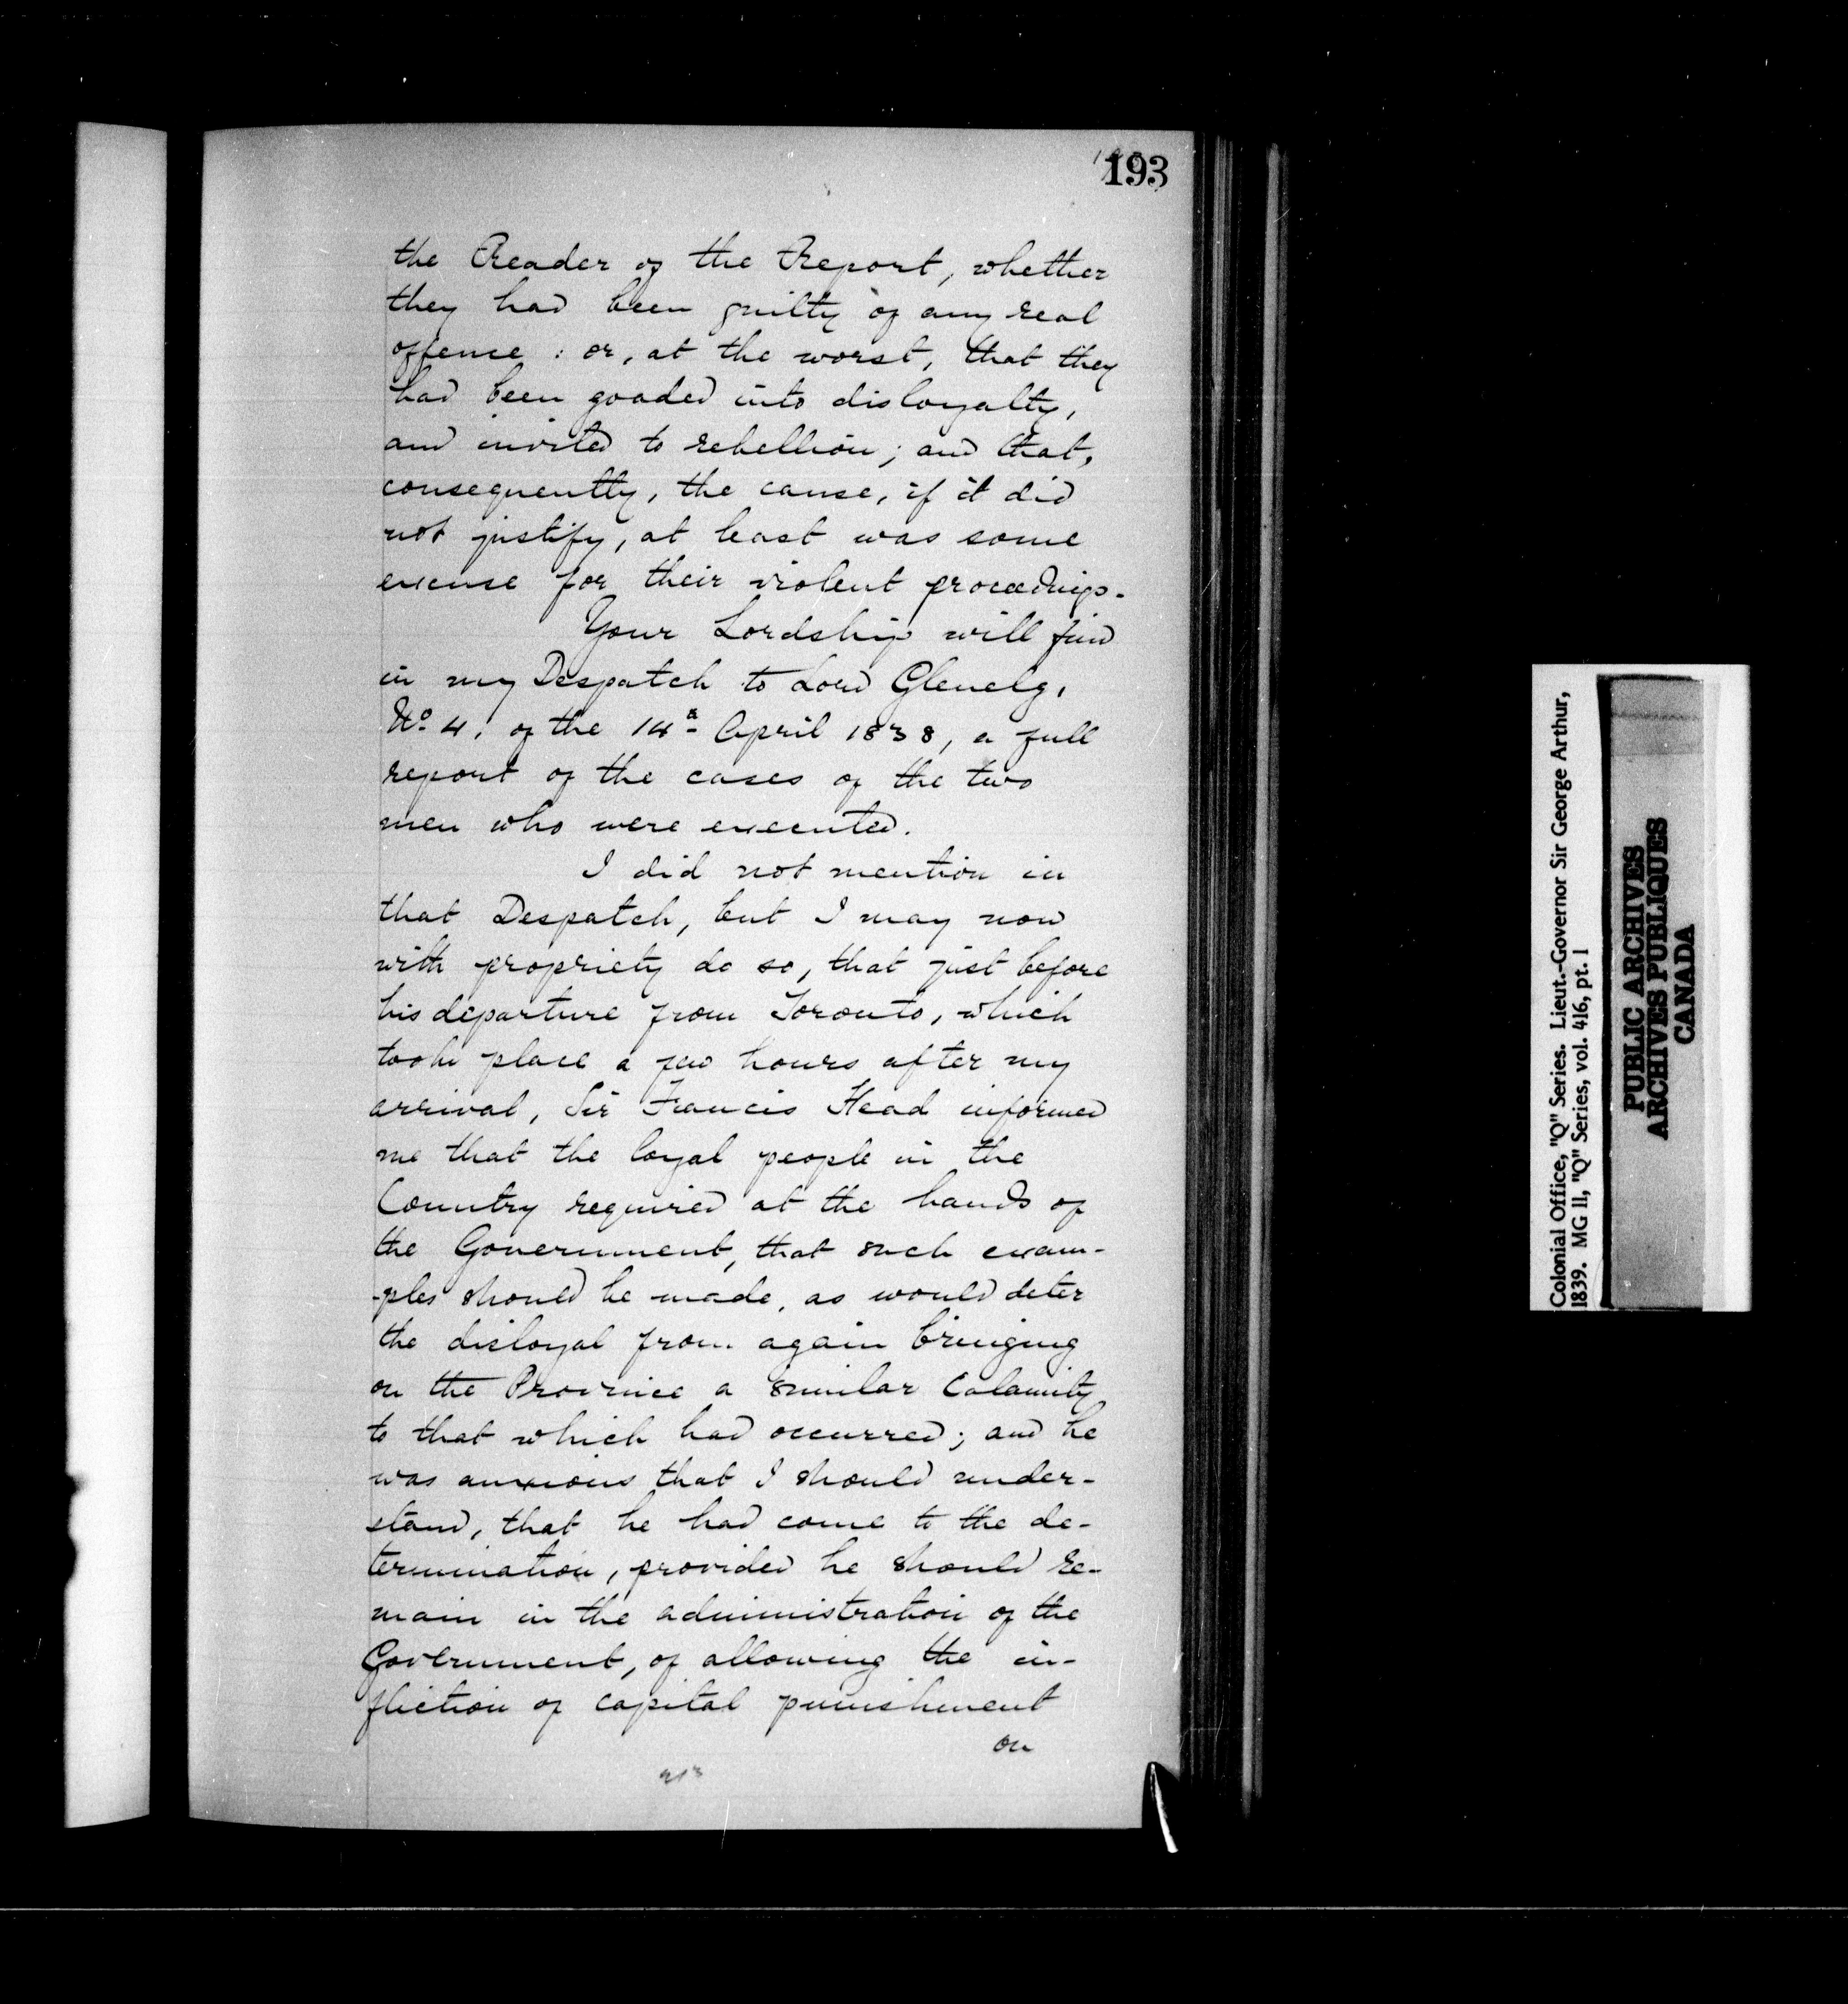 193
the Reader of the Report, whether
they had been guilty of any real
offence : or, at the worst, that they
had been goaded into disloyalty,
and invited to rebellion; and that,
consequently, the cause, if it did
not justify, at least was some
excuse for their violent proceedings.
Your Lordship will find
in my Despatch to Lord Glenelg,
No. 4, of the 14th April 1838, a full
report of the cases of the two
men who were executed.
I did not mention in
that Despatch, but I may now
with propriety do so, that just before
his departure from Toronto, which
took place a few hours after my
arrival, Sir Francis Head informed
me that the loyal people in the
Country required at the hands of
the Government, that such exam-
-ples should be made, as would deter
the disloyal from again bringing
on the Province a similar Calamity
to that which had occurred; and he
was anxious that I should under-
stand, that he had come to the de-
termination, provided he should re-
main in the administration of the
Government, of allowing the in-
fliction of capital punishment
on
Colonial Office, "Q" Series. Lieut.-Governor Sir George Arthur,
1839. MG 11, "Q" Series, vol. 416, pt. 1
PUBLIC ARCHIVES
ARCHIVES PUBLIQUES
CANADA